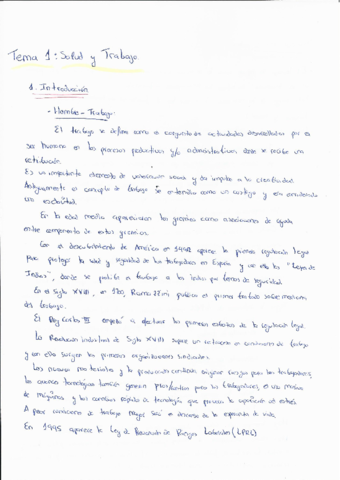 Tema 1: Salud y Trabajo
1. Introducción
- Hombre - Trabajo:
El trabajo se define como el conjunto de actividades desarrolladas por el
ser humano en los procesos productivos y/o administrativos donde se recibe una
retribución.
Es un importante elemento de valoración social y da impulso a la creatividad.
Antiguamente el concepto de trabajo se entendía como un castigo y era
con esclavitud.
En la edad media aparecieron los gremios como asociaciones de ayuda
entre componentes de estos gremios.
Con el descubrimiento de América en 1492 aparece la primera regulación legal
para proteger la salud y seguridad de los trabajadores en España y en ella las "Leyes de
Indias", donde se
En el Siglo XVIII, en 1700, Ramazzini publicó el primer tratado sobre medicina
del trabajo.
El Rey Carlos III empezó a efectuar los primeros esfuerzos de la regulación legal.
La Revolución industrial del Siglo XVIII supone un retroceso en condiciones de trabajo
y con ello surgen los primeros organizaciones sindicales.
Los procesos industriales y la producción
los avances tecnológicos también generan para los trabajadores, el uso masivo
de máquinas y los cambios rápidos de tecnología que provoca la aparición del estrés.
A peor condiciones de trabajo mayor será el descenso de la esperanza de vida.
En 1995 aparece la Ley de Prevención de Riesgos Laborales (LPRL)